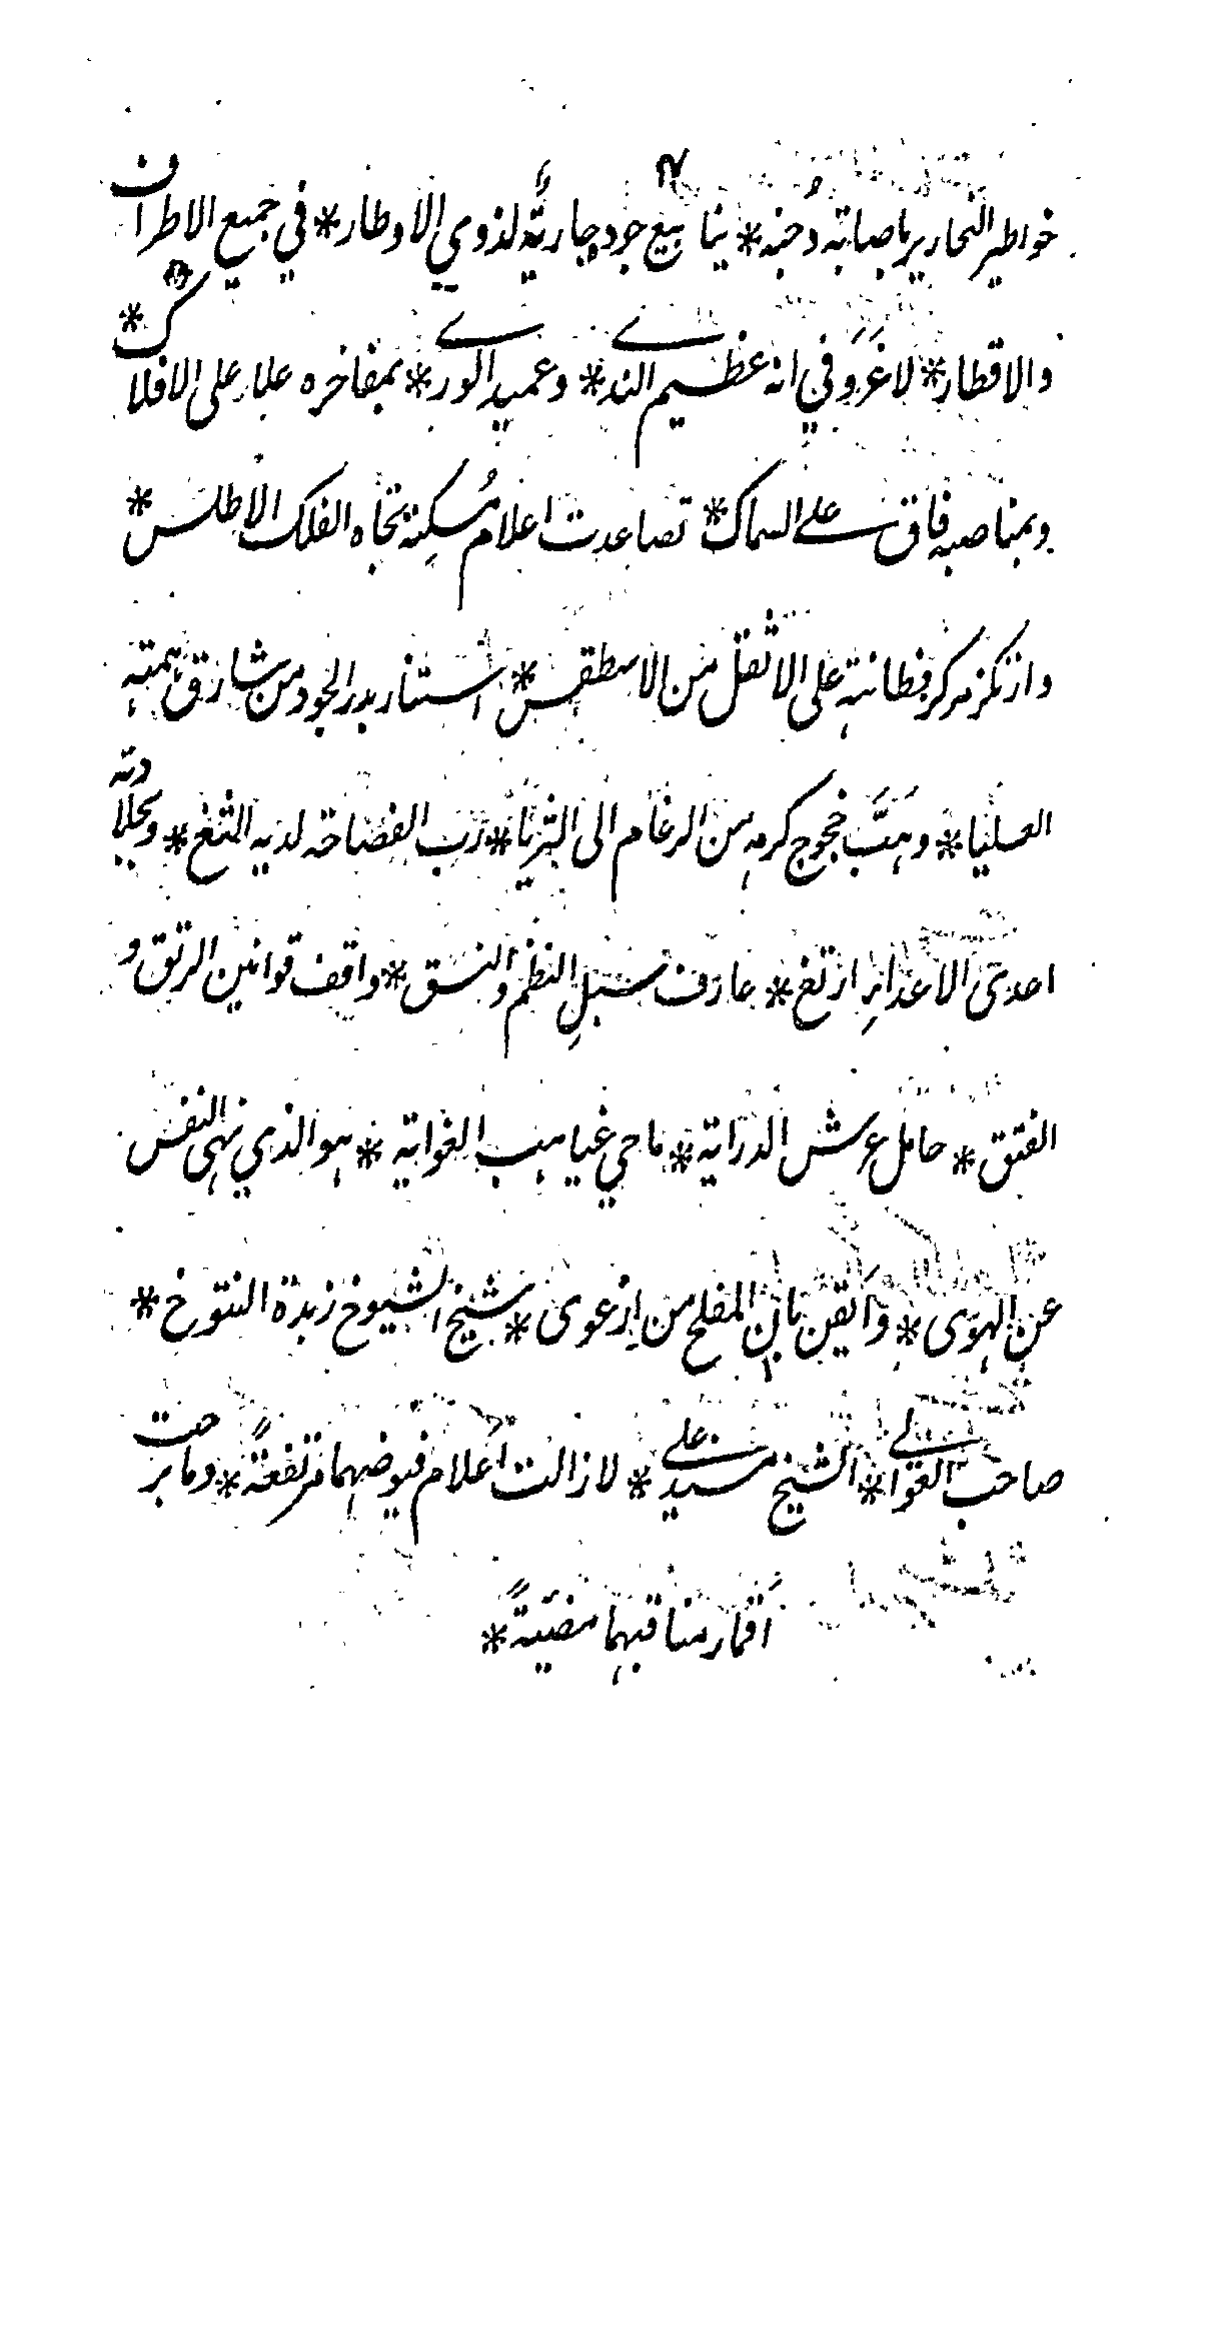 خواطير النحارير باصابته دُجنه * ينابيع جوده جاريَةٌ لذوي الاوطار * في جميع الاطراف
والاقطار * لا غَرَوَ في انه عظيم الندے * وعميد الورے * بمفاخره علا على الافلاك *
وبمناصبه فاق على السماك * تصاعدت اعلام مُسكنِه تجاه الفلك الاطلس *
وارتكز مركز فطانته على الاثقل من الاسطقس * استنار بدر الجود من شارق همته
العليا * وهَبَّ خجوج كرمه من الرغام الى الثريا * رَب الفصاحة لديه الثغ * وبجلادته
اعدى الاعداءِ ارثغ * عارف سبلِ النظم والنسق * واقف قوانين الرتق و
الفتق * حامل عرش الدراية * ماحي غياهب الغواية * هو الذي نهى النفس
عن الهوى * وايقن بان المفلح من اِرعوى * شيخ الشيوخ زبدة التنوخ *
صاحب العوالي * الشيخ سيد علي * لا زالت اعلام فيوضهما مرتفعةً * وما برحت
اقمار مناقبهما مضيئةً *